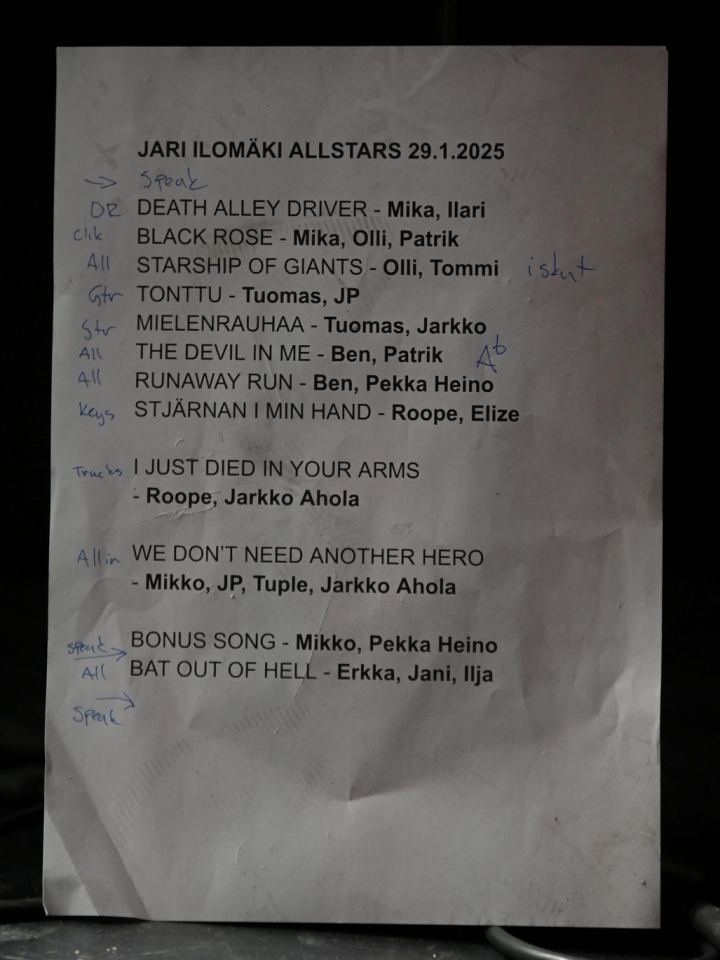 JARI ILOMÄKI ALLSTARS 29.1.2025
→ Speak
DR DEATH ALLEY DRIVER - Mika, Ilari
Clik BLACK ROSE - Mika, Olli, Patrik
All STARSHIP OF GIANTS - Olli, Tommi iskut
Gtr TONTTU - Tuomas, JP
Gtr MIELENRAUHAA - Tuomas, Jarkko
All THE DEVIL IN ME - Ben, Patrik Ab
All RUNAWAY RUN - Ben, Pekka Heino
Keys STJÄRNAN I MIN HAND - Roope, Elize
Tracks I JUST DIED IN YOUR ARMS
- Roope, Jarkko Ahola
All in WE DON'T NEED ANOTHER HERO
- Mikko, JP, Tuple, Jarkko Ahola
speak → BONUS SONG - Mikko, Pekka Heino
All BAT OUT OF HELL - Erkka, Jani, Ilja
Speak →